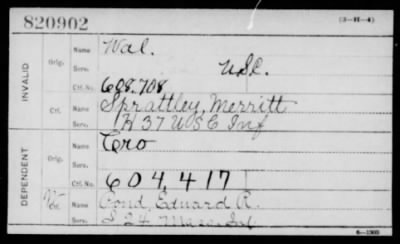 820902 (3-H-4)
INVALID
Orig. Name Wal.
Serv. U.S.C.
Ctf. No. 608.708
Ctf. Name Sprattley, Merritt
Serv. H 37 U S C Inf
DEPENDENT
Orig. Name Cro
Serv.
Ctf. No. 604,417
Name Pond, Edward R.
Serv. I 24 Mass. Inf
6-1305